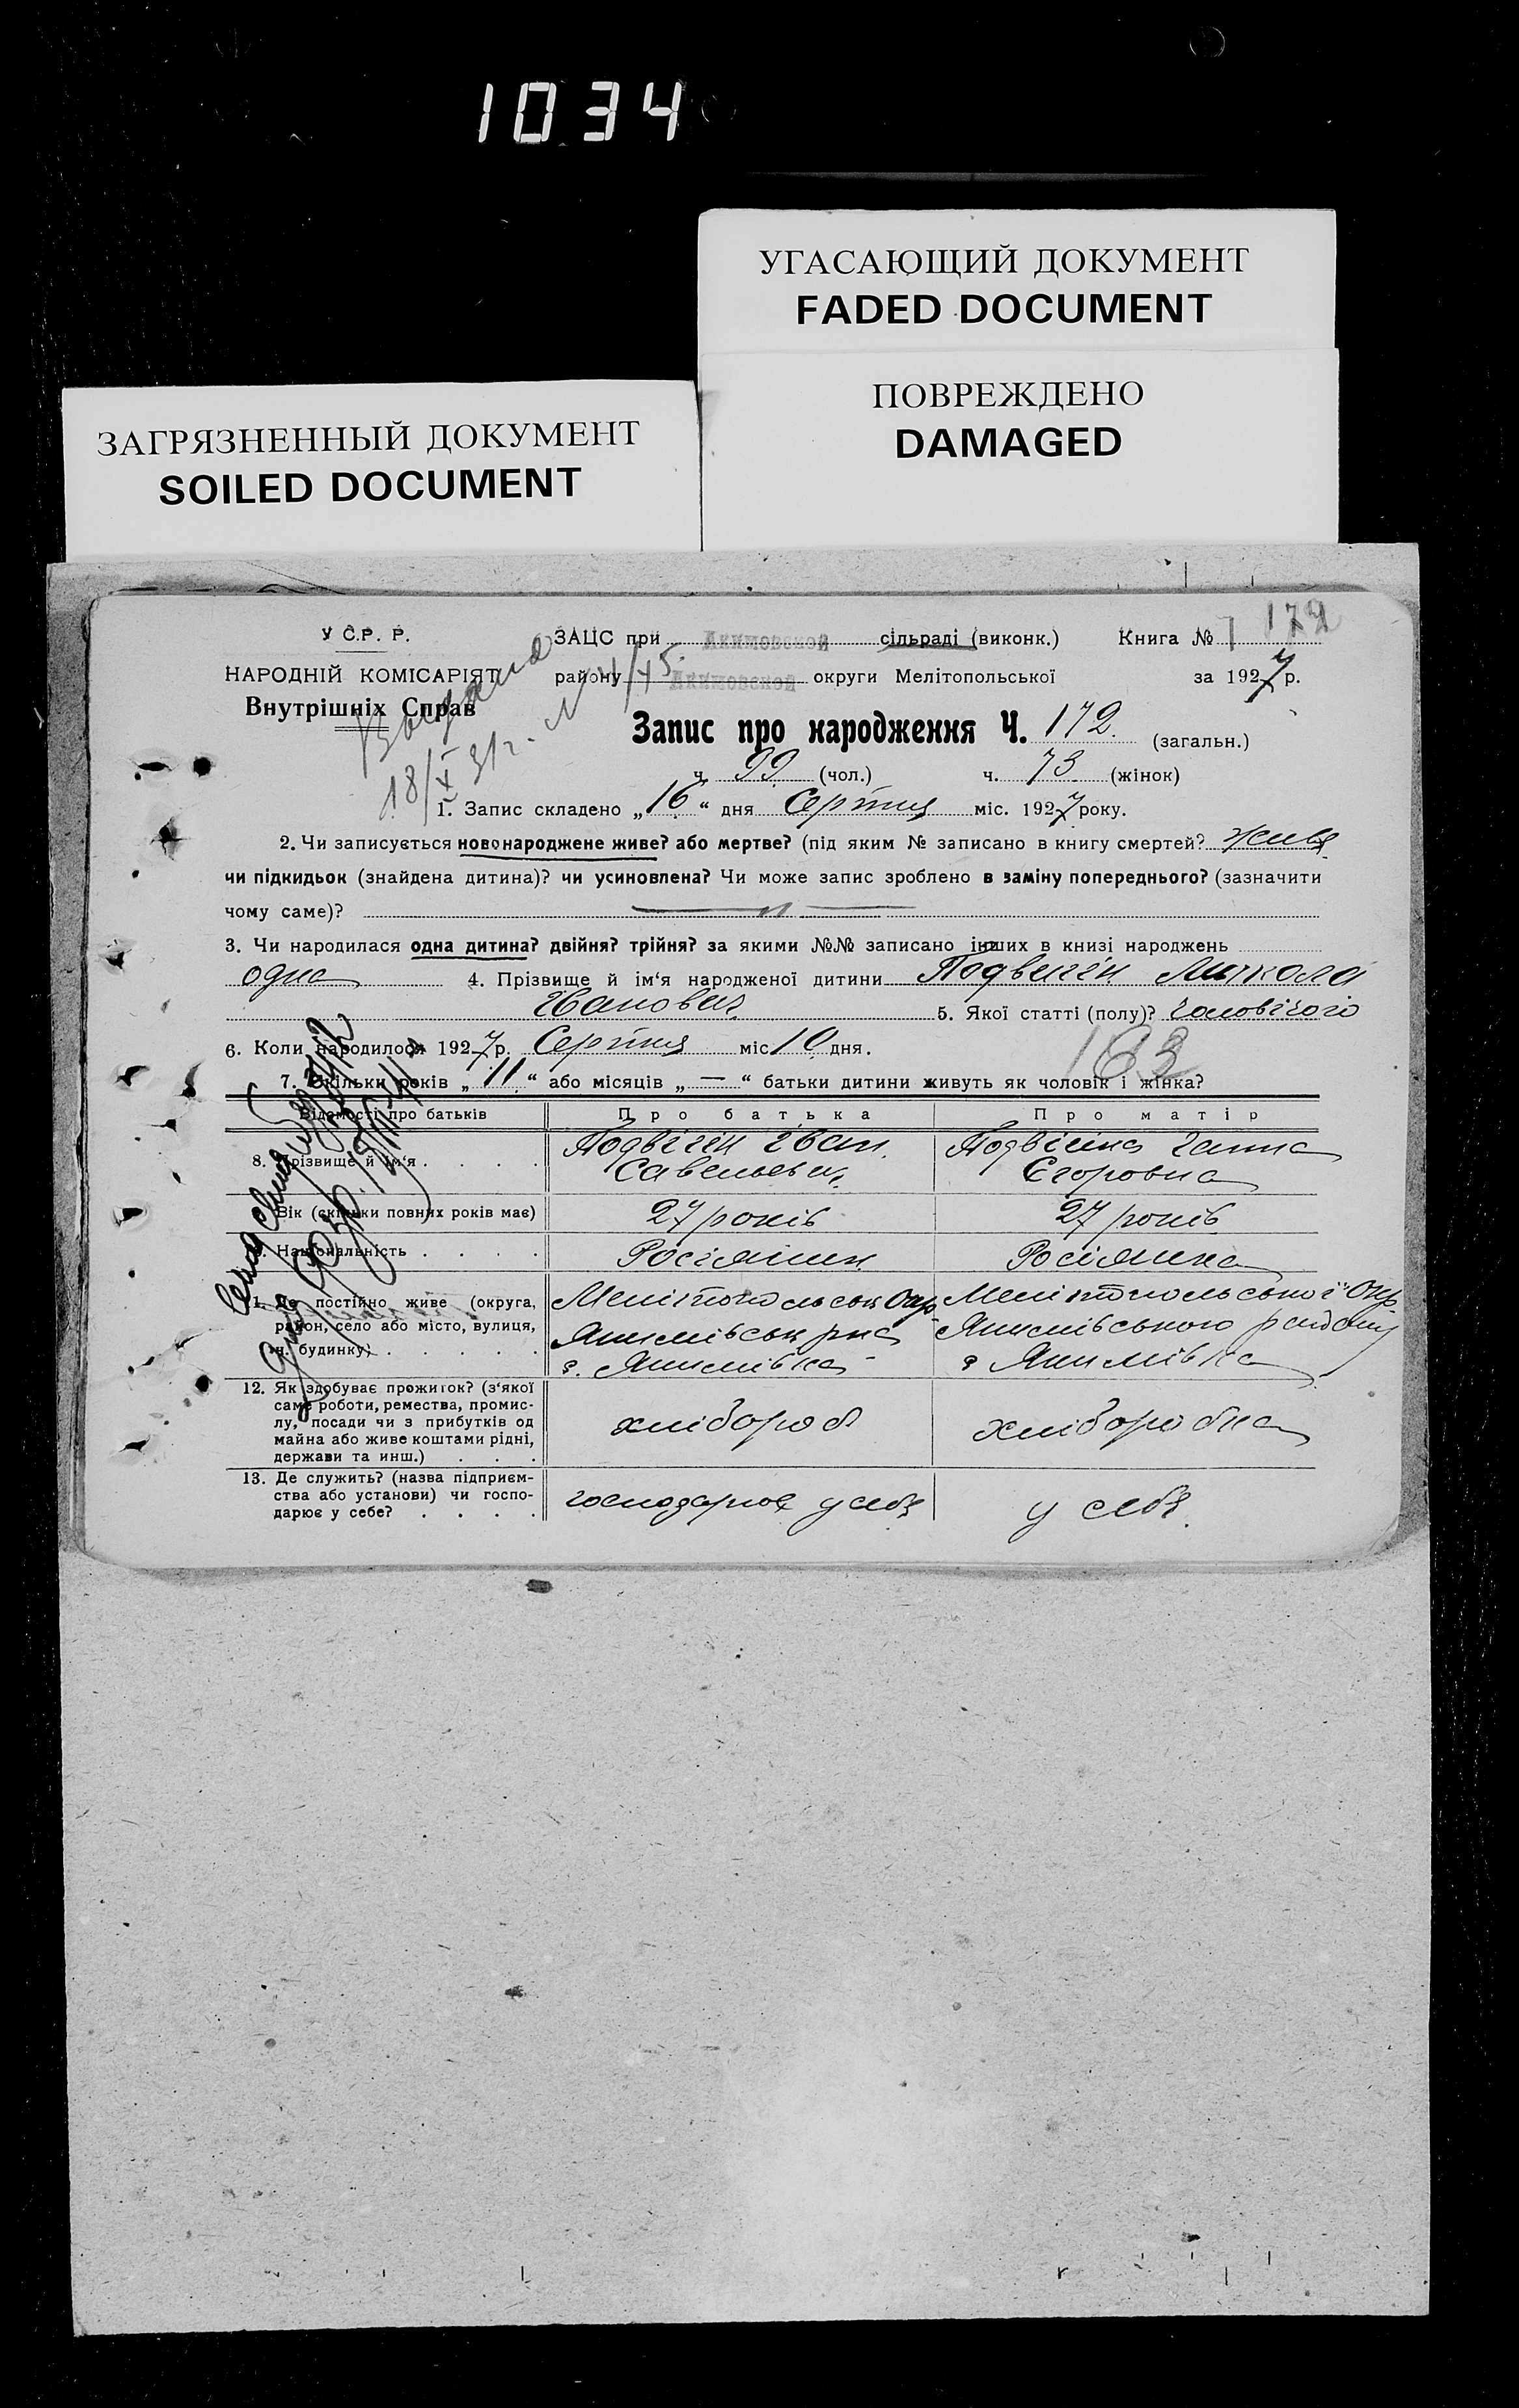 1034
УГАСАЮЩИЙ ДОКУМЕНТ
FADED DOCUMENT
ПОВРЕЖДЕНО
DAMAGED
ЗАГРЯЗНЕННЫЙ ДОКУМЕНТ
SOILED DOCUMENT
У С.Р. Р.
НАРОДНІЙ КОМІСАРІЯТ
Внутрішніх Справ
ЗАЦС при Акимовской сільраді (виконк.) Книга № 1 172
району Акимовской округи Мелітопольської за 1927 р.
Запис про народження Ч. 172. (загальн.)
ч. 99 (чол.) ч. 73 (жінок)
18/X 31 г.
1. Запис складено „16“ дня Серпня міс. 1927 року.
2. Чи записується новонароджене живе? або мертве? (під яким № записано в книгу смертей? живе
чи підкидьок (знайдена дитина)? чи усиновлена? Чи може запис зроблено в заміну попереднього? (зазначити
чому саме)? — „ —
3. Чи народилася одна дитина? двійня? трійня? за якими №№ записано інших в книзі народжень
одна 4. Прізвище й ім‘я народженої дитини Подвигін Микола
Іванович 5. Якої статті (полу)? чоловічого
6. Коли народилося 1927 р. Серпня міс 10 дня.
163
7. Скільки років „11“ або місяців „—“ батьки дитини живуть як чоловік і жінка?
Відомості про батьків Про батька Про матір
8. Прізвище й ім‘я . . . . Подвігін Іван Подвігіна Ганна
Савельевич Єгоровна
Вік (скільки повних років має) 27 років 27 років
Національність . . . . Росіянин Росіянка
11. Де постійно живе (округа, Мелітопольськ Окр. Мелітопольської Окр
район, село або місто, вулиця, Якимівськ рна Якимівського району
ч. будинку) . . . . . с. Якимівка с Якимівка
12. Як здобуває прожиток? (з‘якої
саме роботи, ремества, промис-
лу, посади чи з прибутків од хлібороб хліборобка
майна або живе коштами рідні,
держави та инш.) . . .
13. Де служить? (назва підприєм-
ства або установи) чи госпо- господарює у себе у себе.
дарює у себе? . . . .